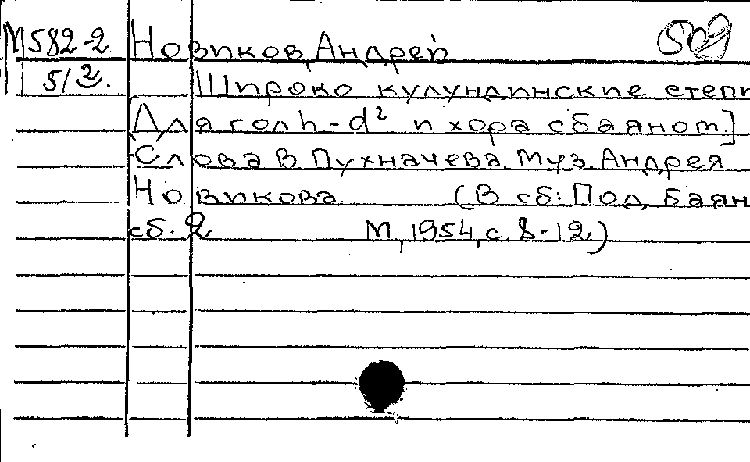 М582-2 Новиков, Андрей 502
5/2. Широко кулундинские степи
[Для гол h-d² и хора с баяном.]
Слова В Пухначева. Муз. Андрея
Новикова (В сб: Под баян
сб. 2 М, 1954, с. 8-12)